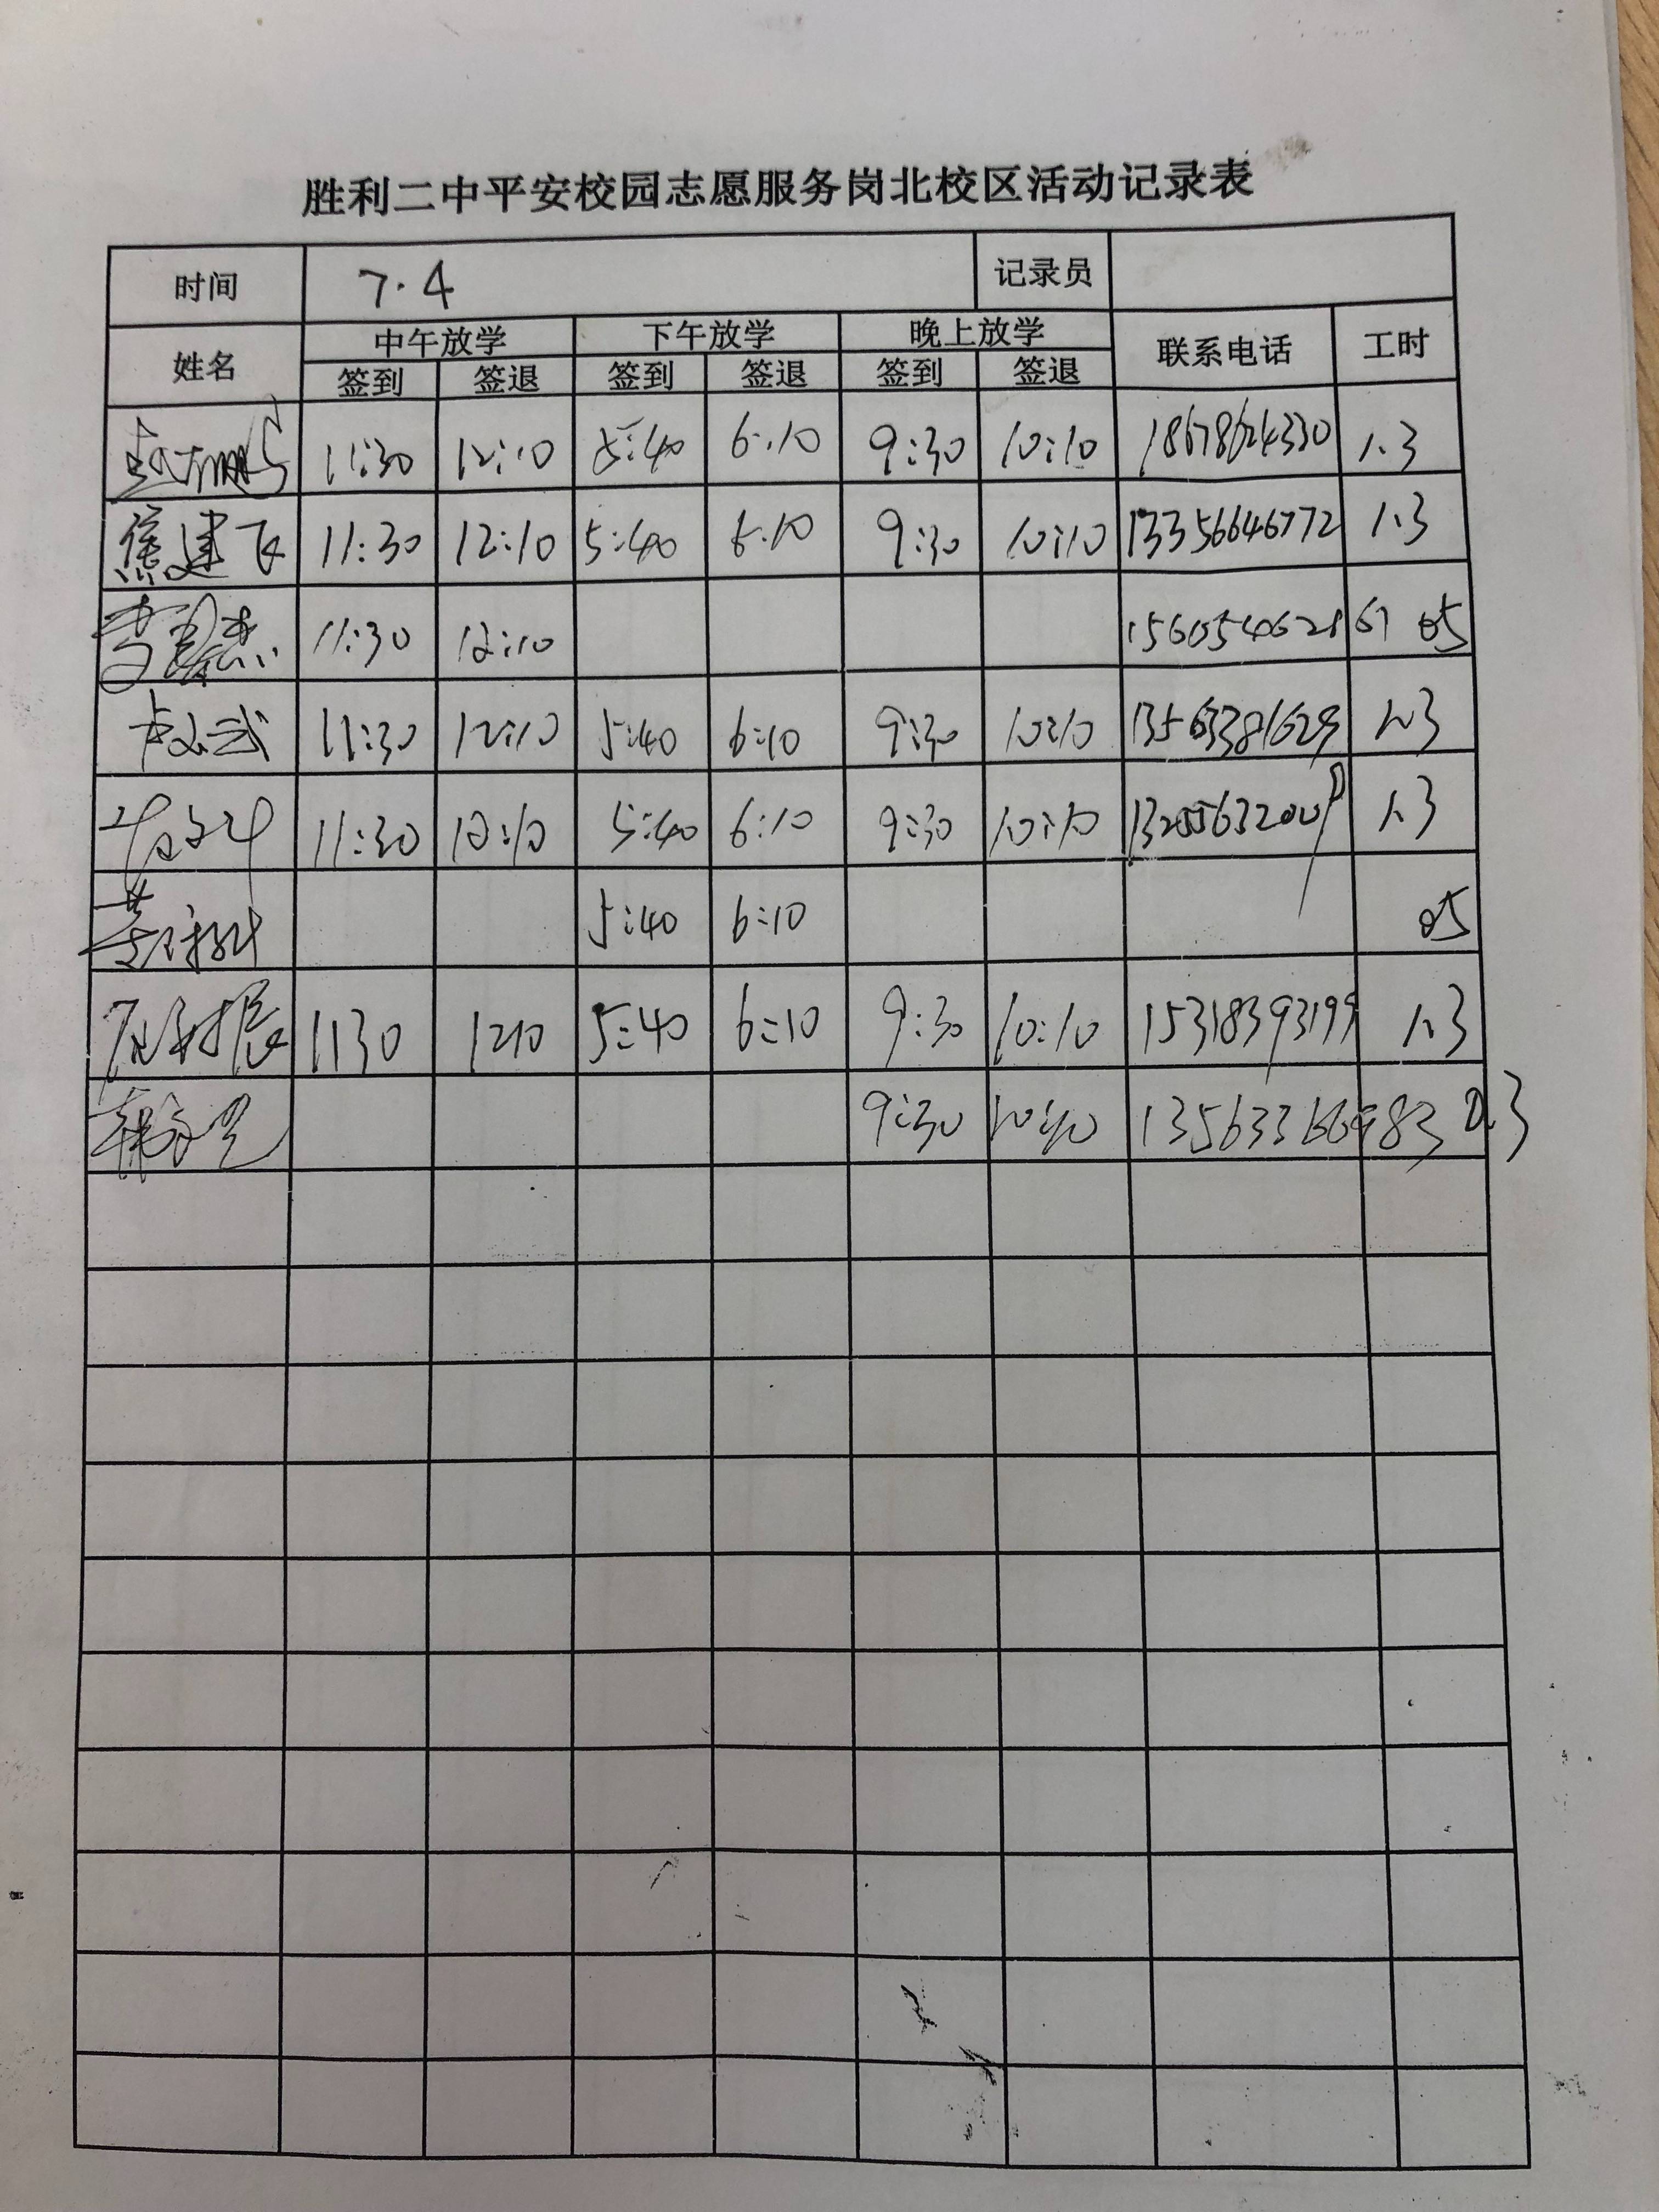 胜利二中平安校园志愿服务岗北校区活动记录表
时间 7.4 记录员
姓名 中午放学 下午放学 晚上放学 联系电话 工时
签到 签退 签到 签退 签到 签退
11:30 12:10 5:40 6:10 9:30 10:10 18678624330 1.3
焦建飞 11:30 12:10 5:40 6:10 9:30 10:10 13356646772 1.3
11:30 12:10 05
11:30 12:10 5:40 6:10 9:30 10:10 13563381629 1.3
11:30 12:10 5:40 6:10 9:30 10:10 1.3
5:40 6:10 05
1130 1210 5:40 6:10 9:30 10:10 15318393199 1.3
9:30 10:10 0.3